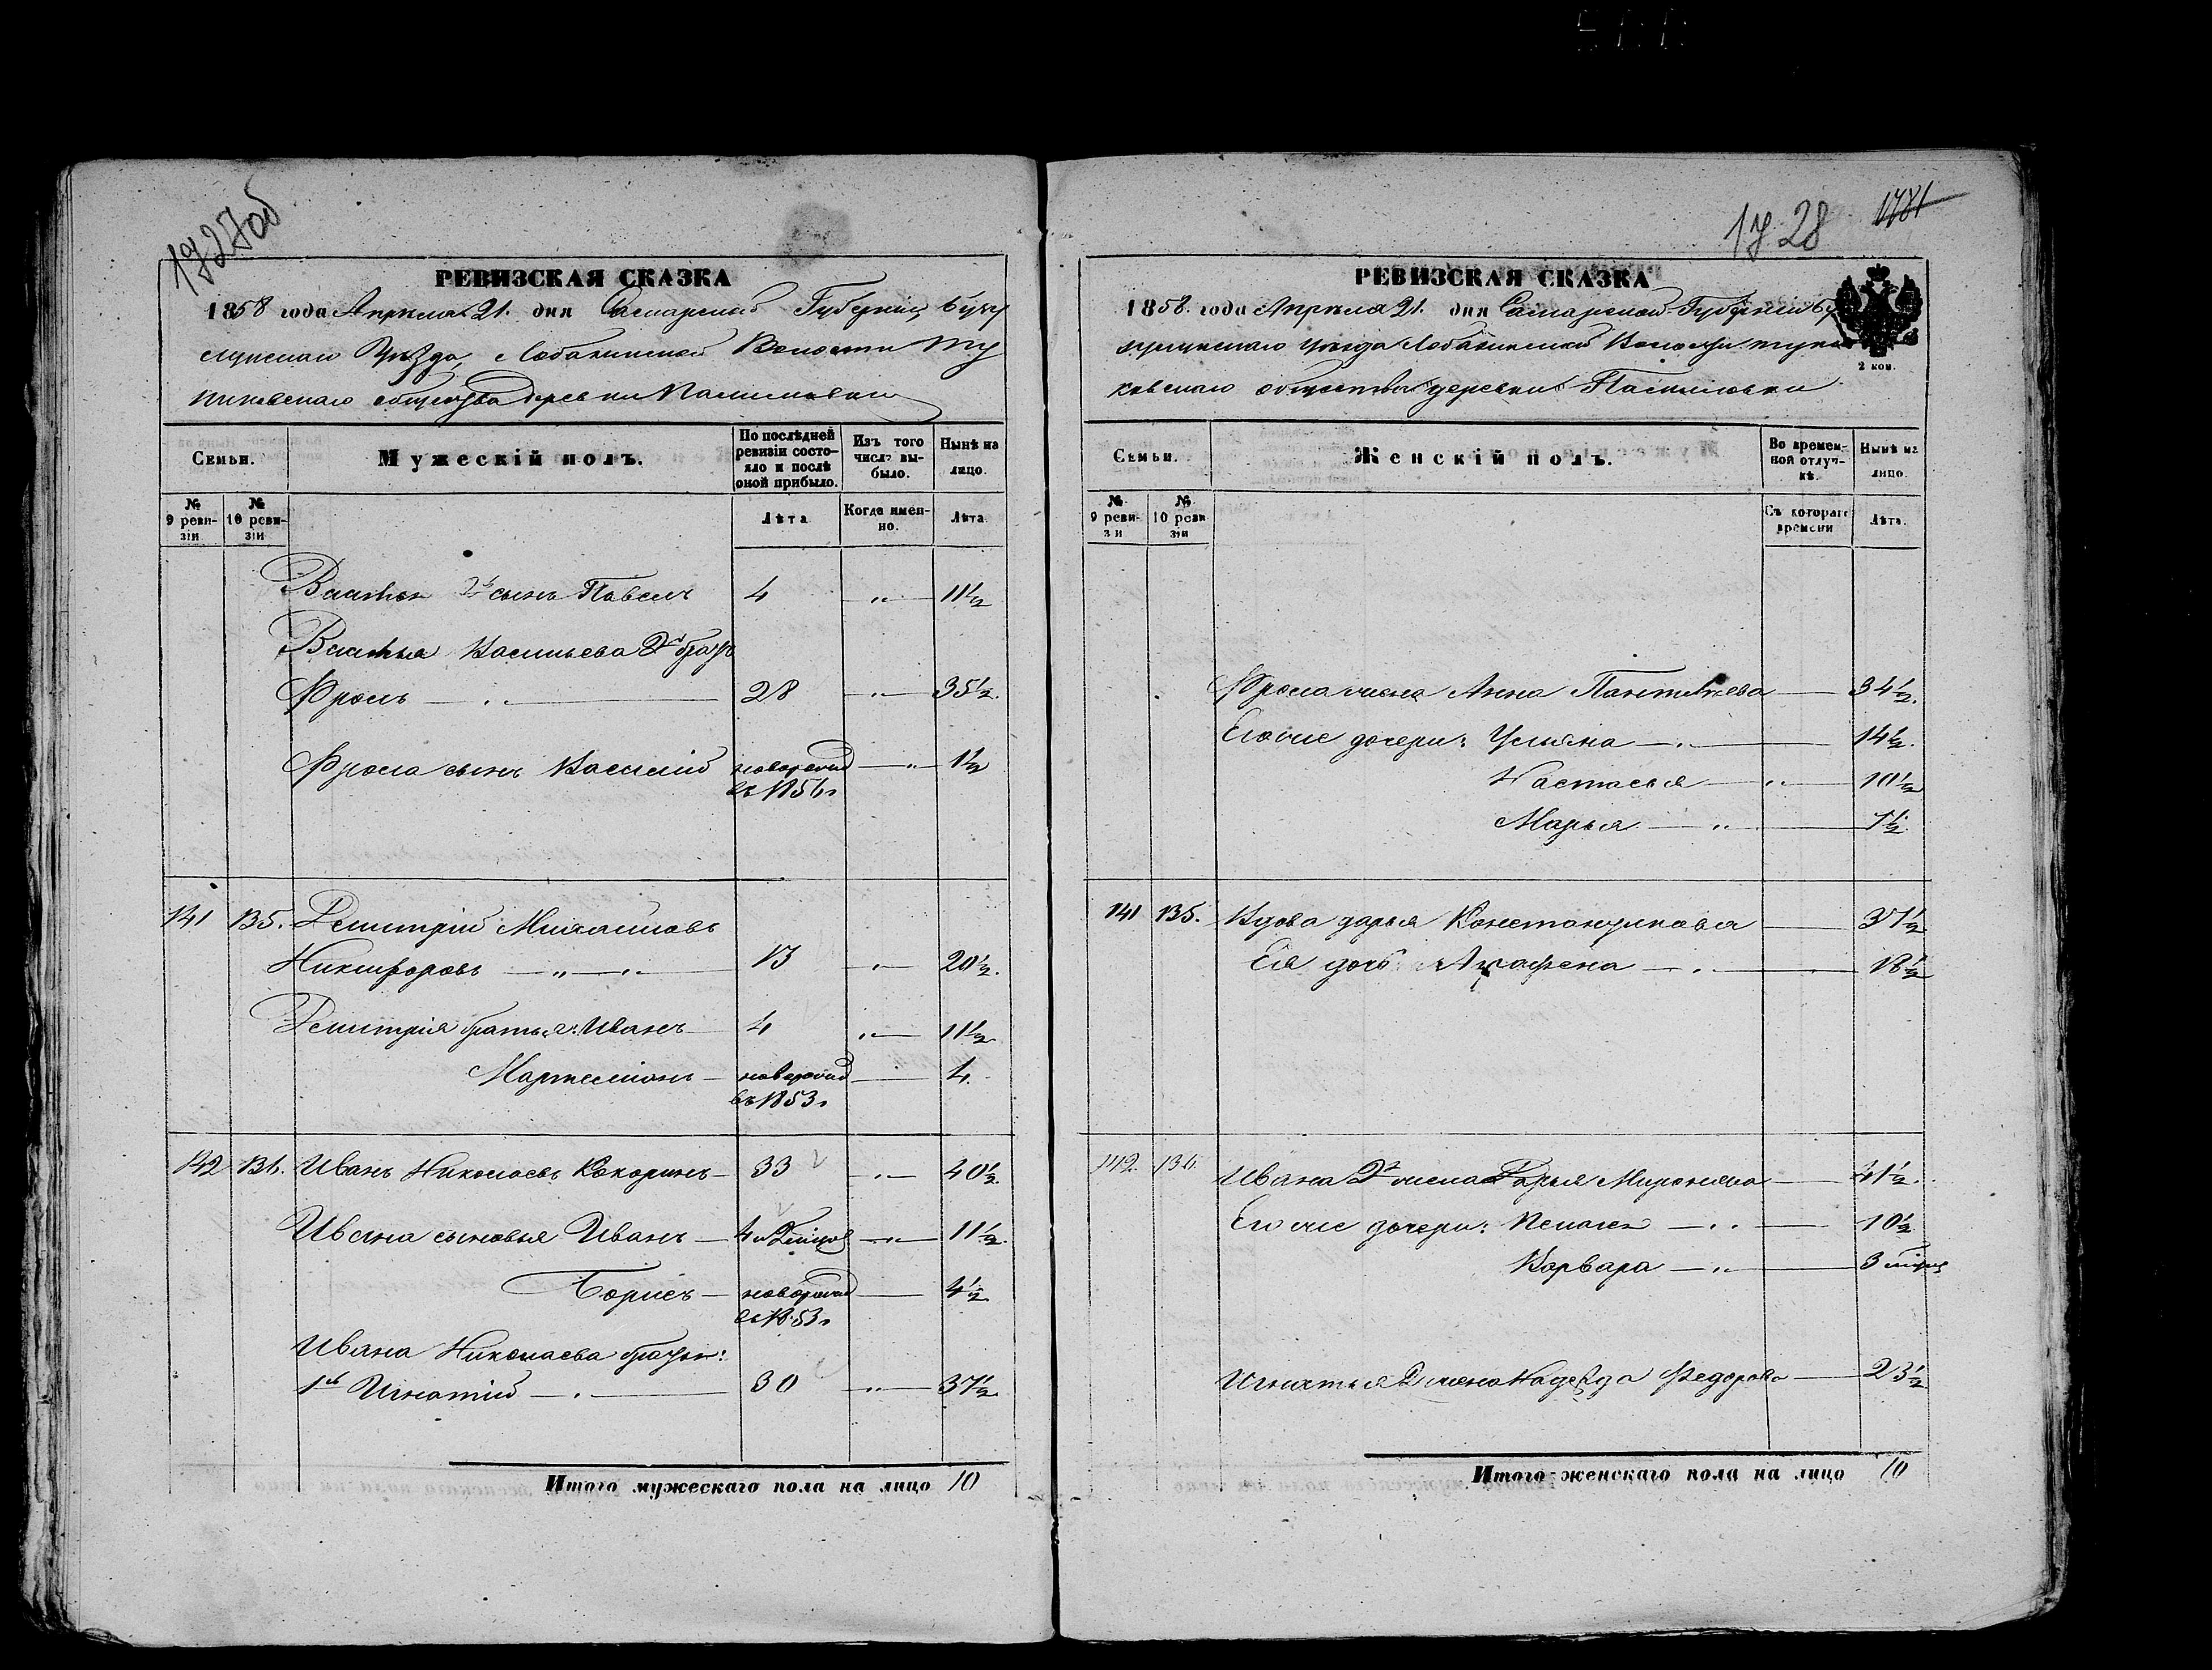 1727 об
РЕВИЗСКАЯ СКАЗКА
1858 года Апреля 21. дня Самарской Губернии, Бугу
русланскаго Уѣзда, Лобакинской Волости
общества деревни Пашиловки
Семьи.
Мужескій полъ.
По послѣдней ревизіи состояло и послѣ оной прибыло.
Изъ того числа выбыло.
Нынѣ на лицо.
№ 9 ревизіи
№ 10 ревизіи
Лѣта
Когда именно.
Лѣта
2й сынъ Павелъ 4 „ 11½
Васильева 2й братъ
Фролъ 28 „ 35½.
Фрола сынъ Василій новорожд „ 1½
въ 1856 г
141 135. Демитрій Михайловъ
Никифоровъ 13 „ 20½.
Демитрія братья: Иванъ 4 „ 11½
новорожд 4.
въ 1853 г
142 136. Иванъ Николаевъ Кокоринъ 33 „ 40½.
Ивана сыновья Иванъ 4 „ 11½.
Борисъ новорожд 4½
въ 1853 г
Ивана Николаева братья:
1й Игнатій 30 „ 37½
Итого мужескаго пола на лицо 10
17 28 1781
РЕВИЗСКАЯ СКАЗКА
1858. года Апреля 21. дня Самарской Губерніи Бу
Уѣзда Лобакинской Волости
ковскаго общества деревни Пашиловки
2 коп.
Семьи.
Женскій полъ.
Во временной отлучкѣ.
Нынѣ на лицо.
№ 9 ревизіи
№ 10 ревизіи
Съ котораго времени
Лѣта.
Фрола жена Анна Пантелѣева 34½.
Его же дочери: Ульяна 14½.
Настасья 10½
Марья 7½.
141 135. Вдова Дарья Константинова 37½
Ея дочь Аграфена 18½
142. 136. Ивана 2я жена Дарья Миронова 41½.
Его же дочери: Пелагея 10½
Варвара 3
Игнатья жена Надежда Федорова 23½
Итого женскаго пола на лицо 10